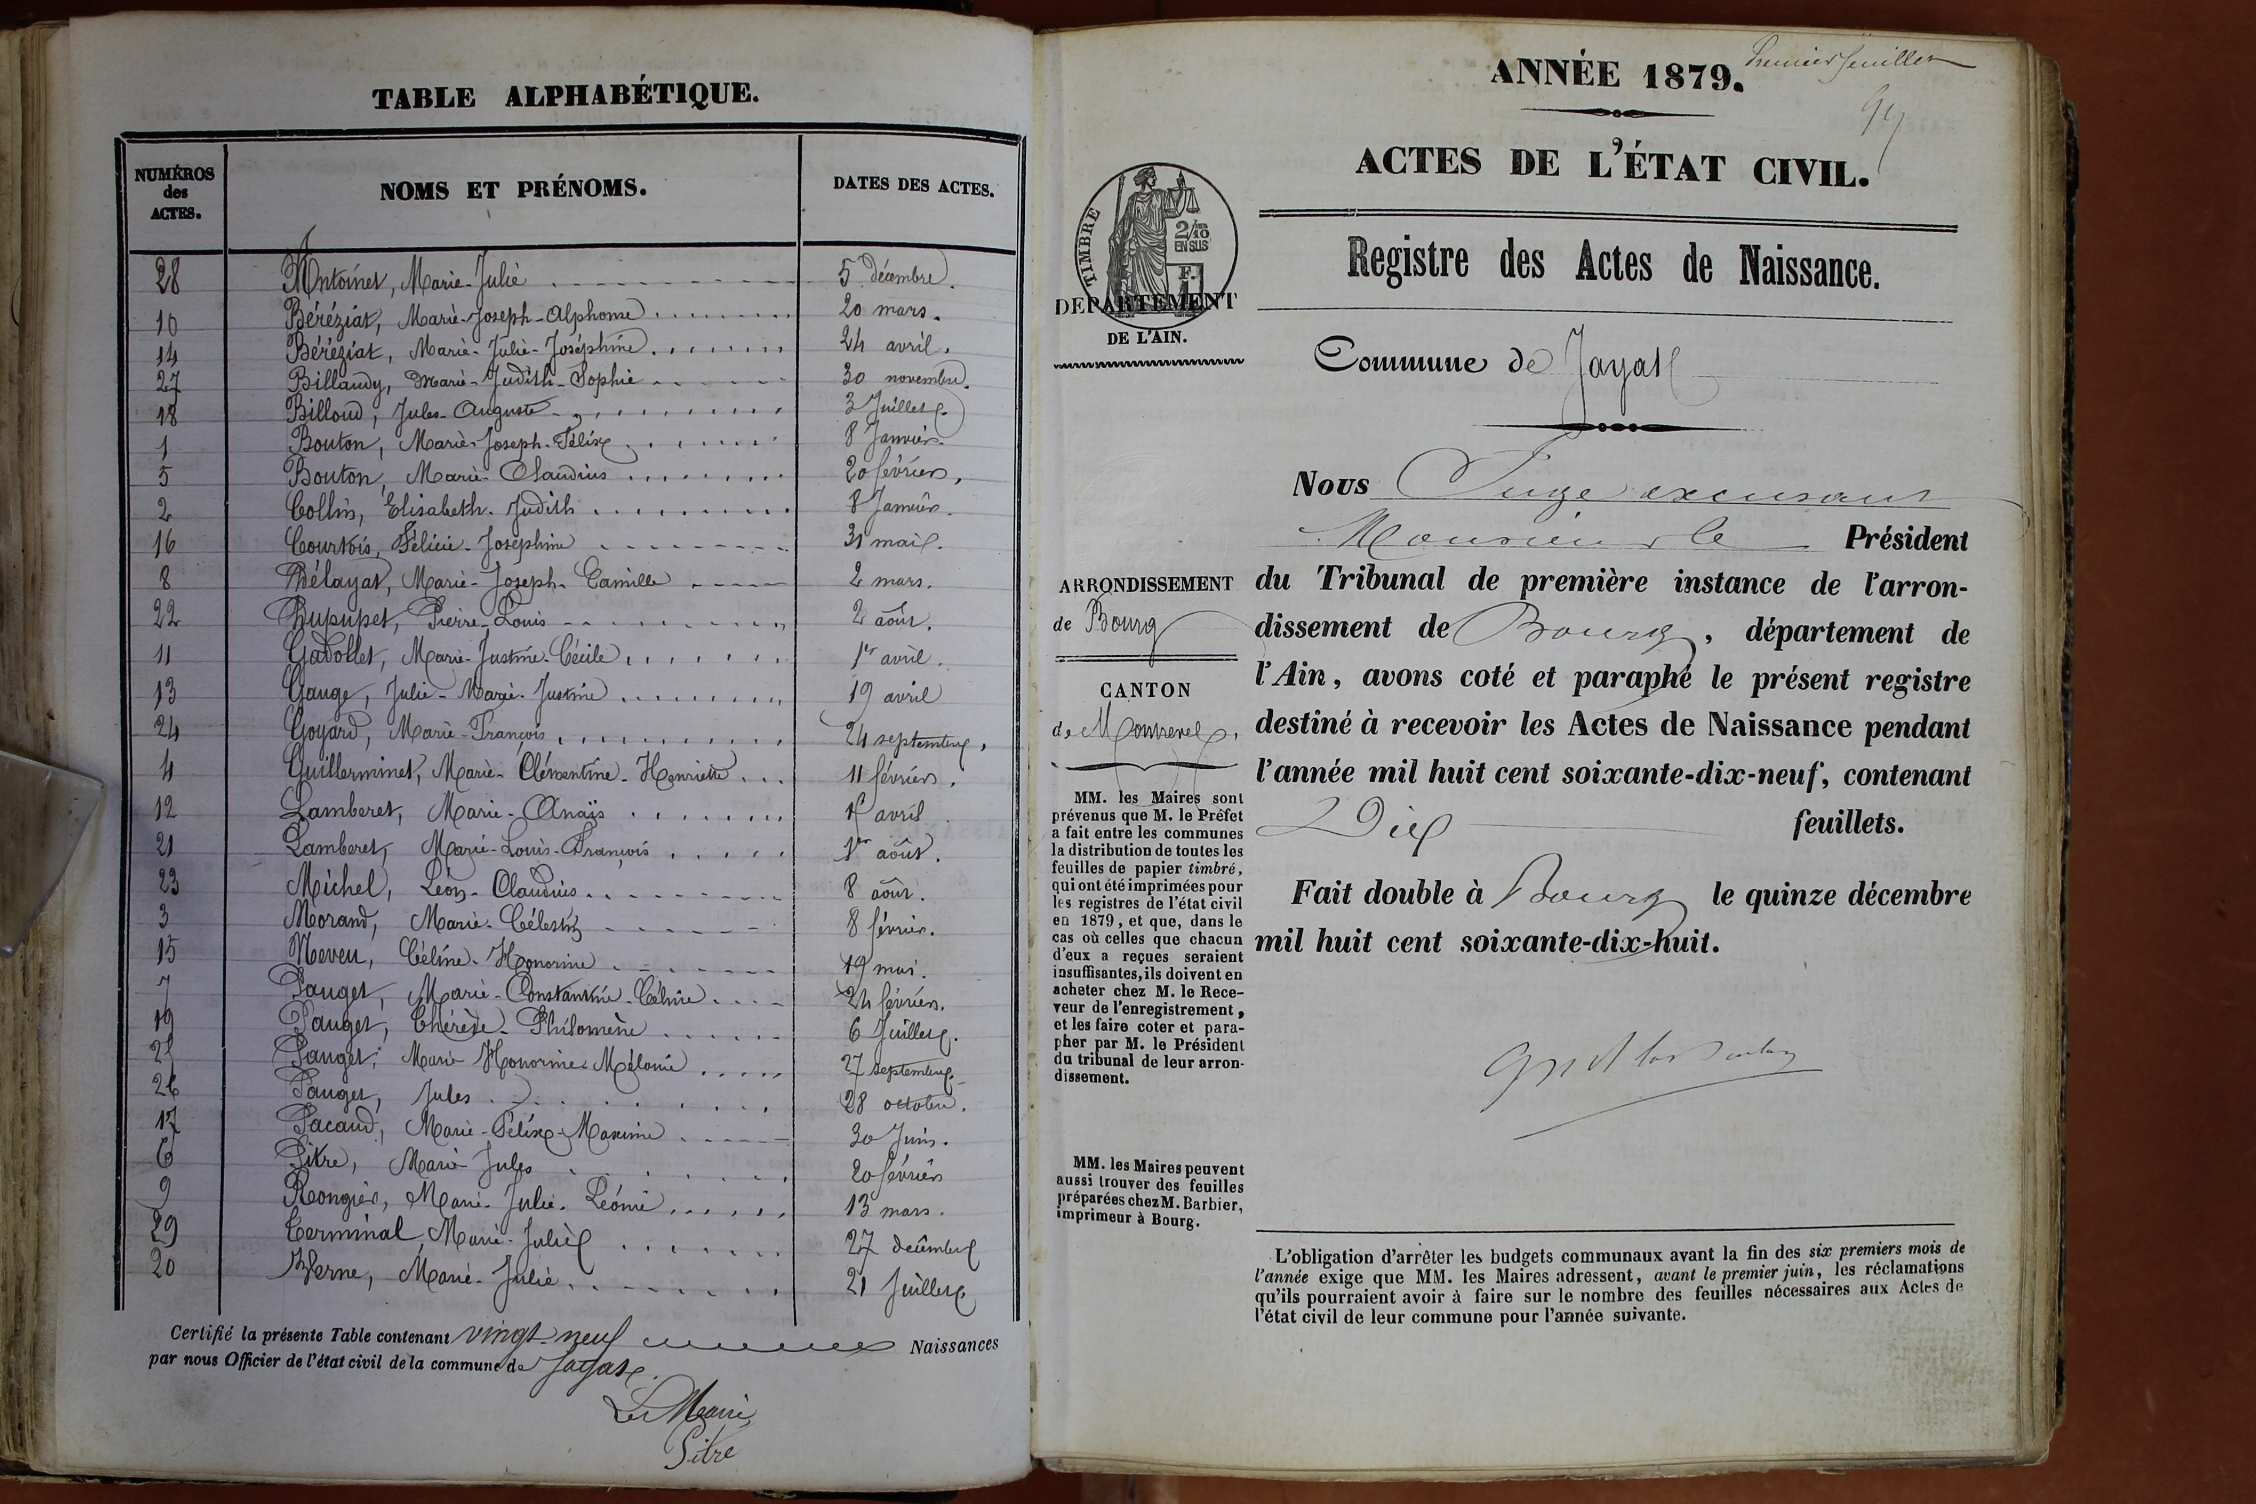 TABLE ALPHABÉTIQUE.
NUMÉROS des ACTES. NOMS ET PRÉNOMS. DATES DES ACTES.
28 Antoinet, Marie-Julie 5 décembre.
10 Béréziat, Marie-Joseph-Alphonse 20 mars.
14 Béréziat, Marie-Julie-Joséphine 24 avril.
27 Billaudy, Marie-Judith-Sophie 30 novembre.
18 Billoud, Jules-Auguste 3 Juillet.
1 Bouton, Marie-Joseph-Félix 8 Janvier.
5 Bouton, Marie-Claudius 20 février.
2 Collin, Elisabeth-Judith 8 Janvier.
16 Courtois, Félicie-Joséphine 31 mai.
8 Délayat, Marie-Joseph-Camille 2 mars.
22 Dupupet, Pierre-Louis 2 août.
11 Gadollet, Marie-Justine-Cécile 1er avril.
13 Gauge, Julie-Marie-Justine 19 avril
24 Goyard, Marie-François 24 septembre.
4 Guillerminet, Marie-Clémentine-Henriette 11 février.
12 Lamberet, Marie-Anaïs avril
21 Lamberet, Marie-Louis-François 1er août.
23 Michel, Léon-Claudius 8 août.
3 Morand, Marie-Célestin 8 février.
15 Neveu, Céline-Honorine 19 mai.
7 Pauget, Marie-Constantine-Célinie 24 février.
19 Pauget, Thérèse-Philomène 6 Juillet.
25 Pauget, Marie Honorine Mélanie 27 septembre
26 Pauget, Jules 28 octobre.
17 Pacaud, Marie-Félix-Maxime 30 Juin.
6 Pitre, Marie-Jules 20 février
9 Rongier, Marie-Julie-Léonie 13 mars.
29 Terminal, Marie-Julie 27 décembre
20 Verne, Marie-Julie 21 Juillet
Certifié la présente Table contenant vingt-neuf Naissances
par nous Officier de l'état civil de la commune de Jayat.
Le Maire,
Pitre
Premier feuillet
ANNÉE 1879.
ACTES DE L'ÉTAT CIVIL.
TIMBRE
2/10 EN SUS
F.
DEPARTEMENT
DE L'AIN.
Registre des Actes de Naissance.
Commune de Jayat
Nous Juge excusant
Monsieur le Président
du Tribunal de première instance de l'arron-
dissement de Bourg, département de
l'Ain, avons coté et paraphé le présent registre
destiné à recevoir les Actes de Naissance pendant
l'année mil huit cent soixante-dix-neuf, contenant
Dix feuillets.
Fait double à Bourg le quinze décembre
mil huit cent soixante-dix-huit.
ARRONDISSEMENT
de Bourg
CANTON
de Montrevel.
MM. les Maires sont
prévenus que M. le Préfet
a fait entre les communes
la distribution de toutes les
feuilles de papier timbré,
qui ont été imprimées pour
les registres de l'état civil
en 1879, et que, dans le
cas où celles que chacun
d'eux a reçues seraient
insuffisantes, ils doivent en
acheter chez M. le Rece-
veur de l'enregistrement,
et les faire coter et para-
pher par M. le Président
du tribunal de leur arron-
dissement.
MM. les Maires peuvent
aussi trouver des feuilles
préparées chez M. Barbier,
imprimeur à Bourg.
L'obligation d'arrêter les budgets communaux avant la fin des six premiers mois de
l'année exige que MM. les Maires adressent, avant le premier juin, les réclamations
qu'ils pourraient avoir à faire sur le nombre des feuilles nécessaires aux Actes de
l'état civil de leur commune pour l'année suivante.